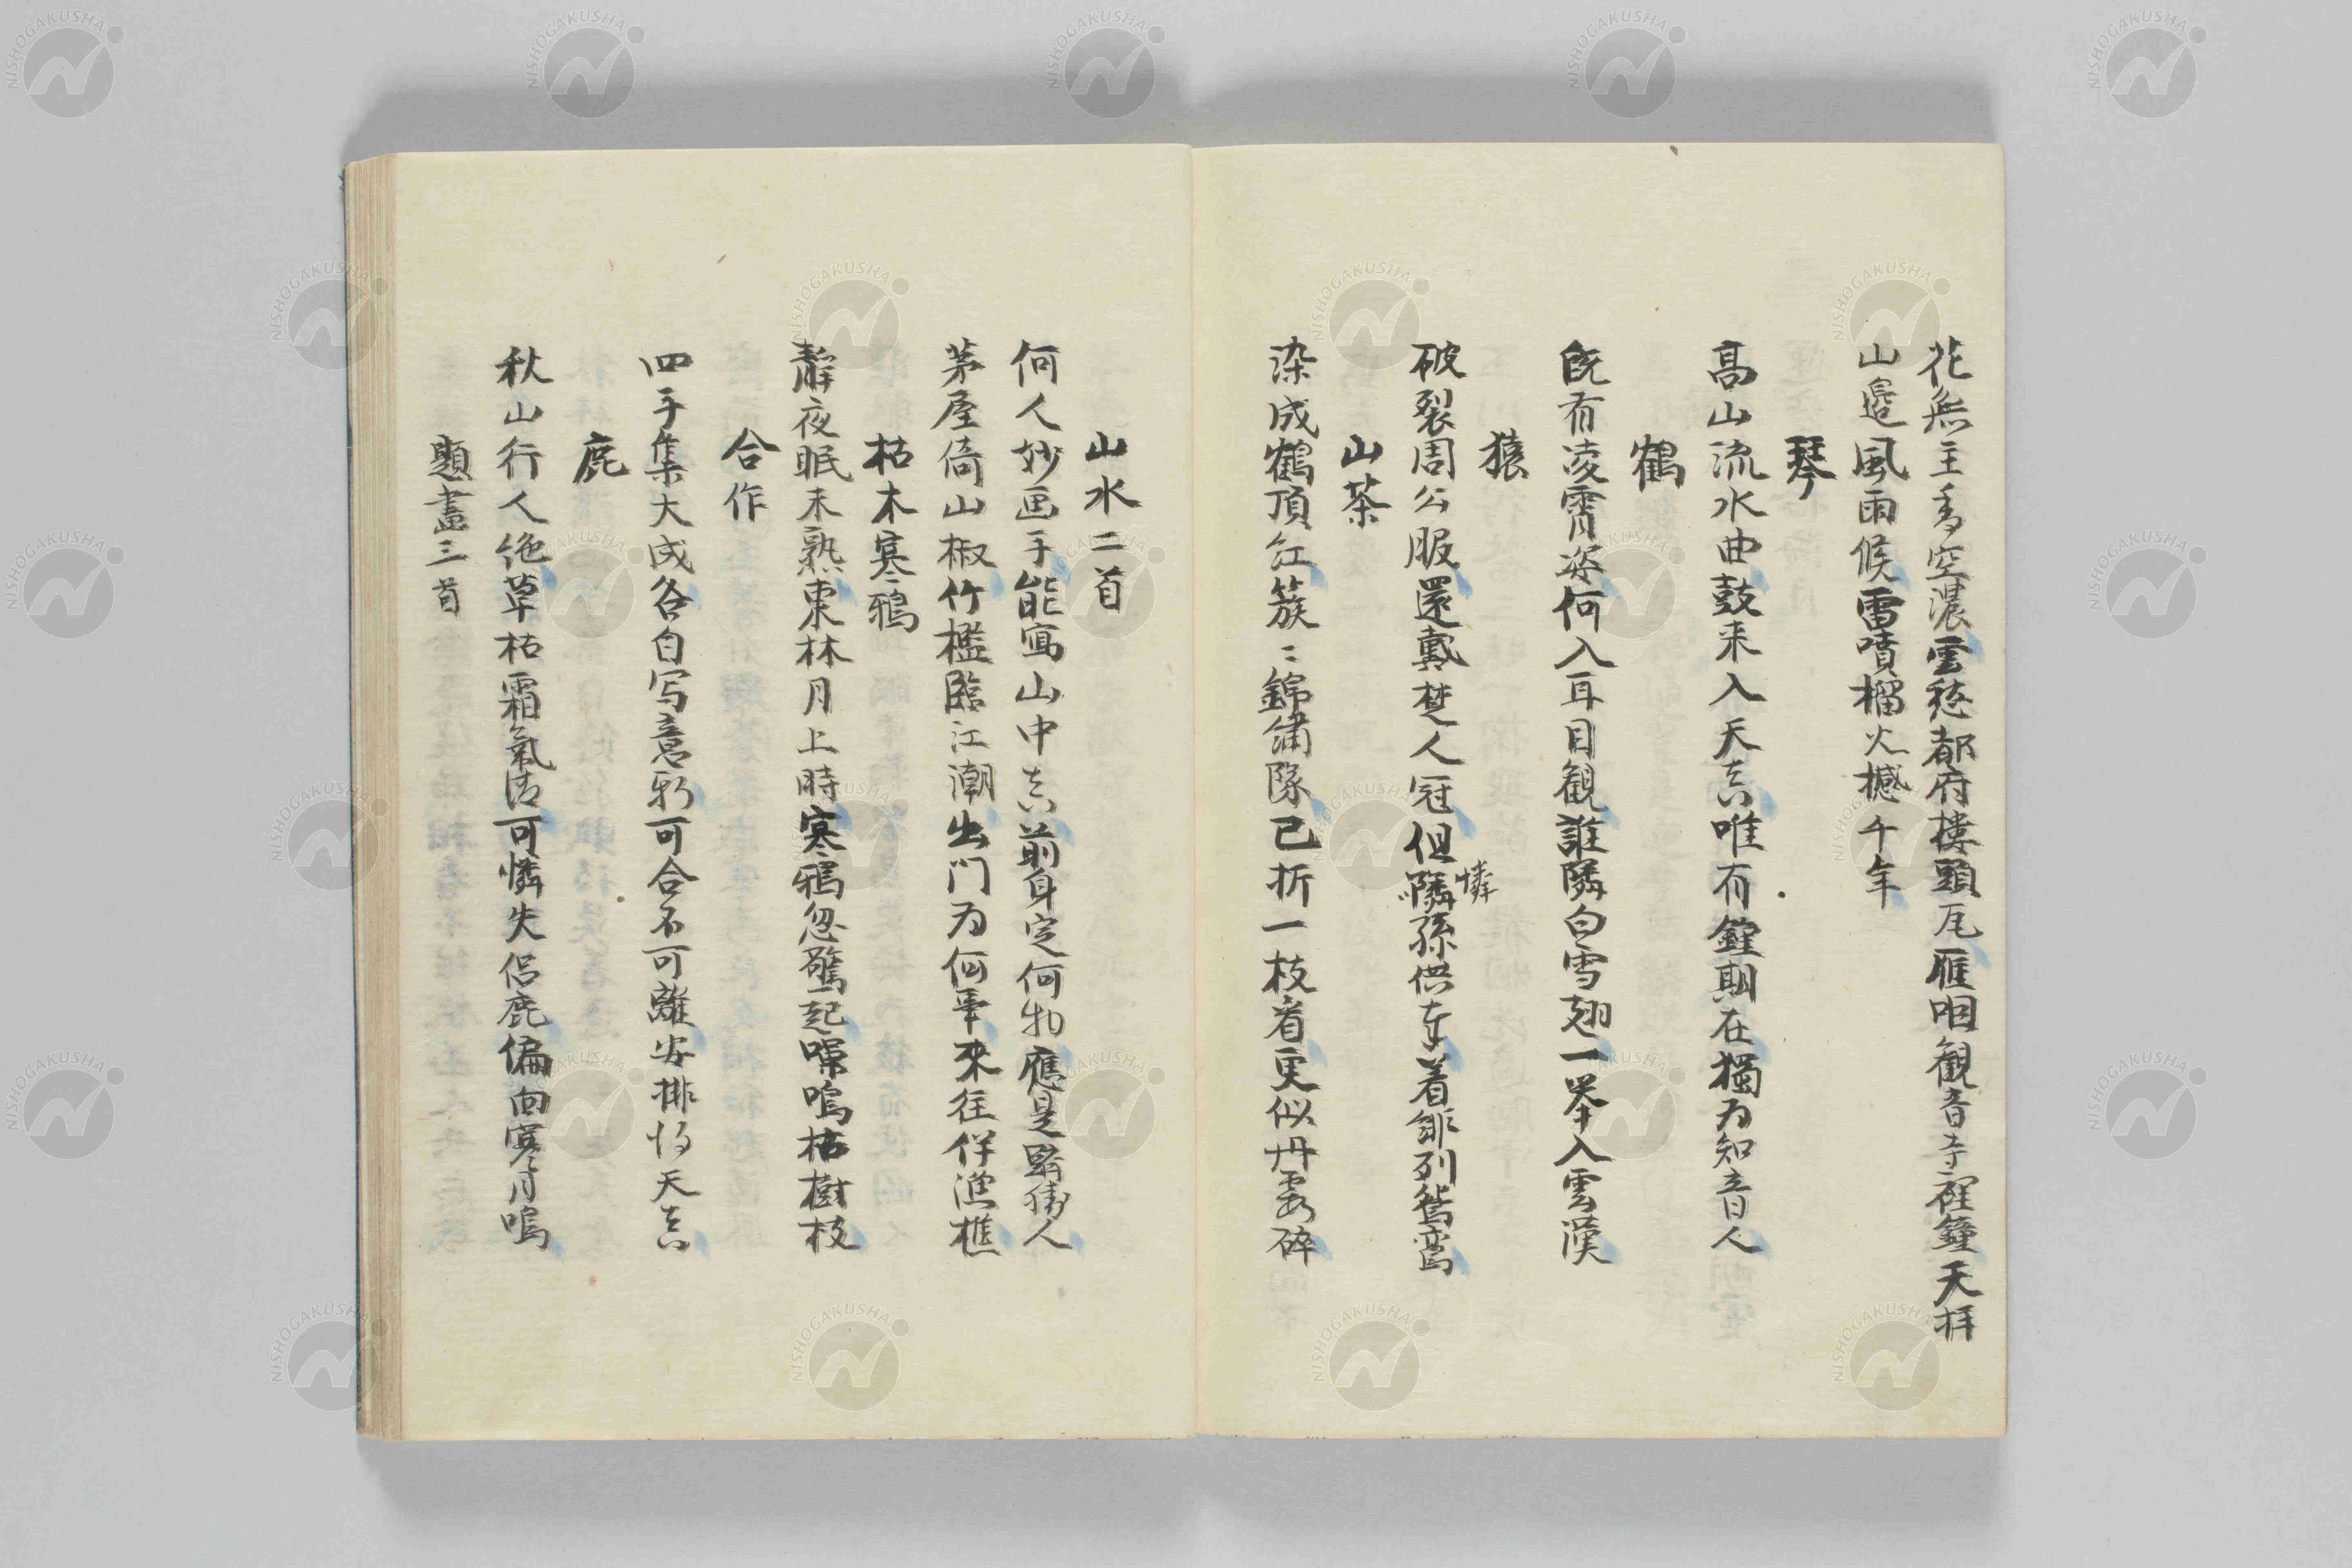 花無主香空濃雲愁都府楼頭瓦雁咽観音寺裡鐘天拝
山邉風雨候雷噴榴火撼千年
琴
高山流水曲鼓来入天真唯有鐘期在獨為知音人
鶴
既有凌霄姿何入耳目観誰隣白雪翅一挙入雲漢
猿
破裂周公服還戴楚人冠但隣孫供奉着緋列鴛鸞
憐
山茶
染成鶴頂紅簇〻錦繍隊已折一枝看更似丹霞砕
山水二首
何人妙画手能寫山中真前身定何物應是騎猪人
茅屋倚山椒竹檻臨江潮出門為何事来往伴漁樵
枯木寒鴉
静夜眠未熟東林月上時寒鴉忽驚起噪鳴枯樹枝
合作
四手集大成各自写意新可合不可離安排悩天真
鹿
秋山行人絶草枯霜氣清可憐失侶鹿偏向寒月鳴
題畫三首
NISHOGAKUSHA